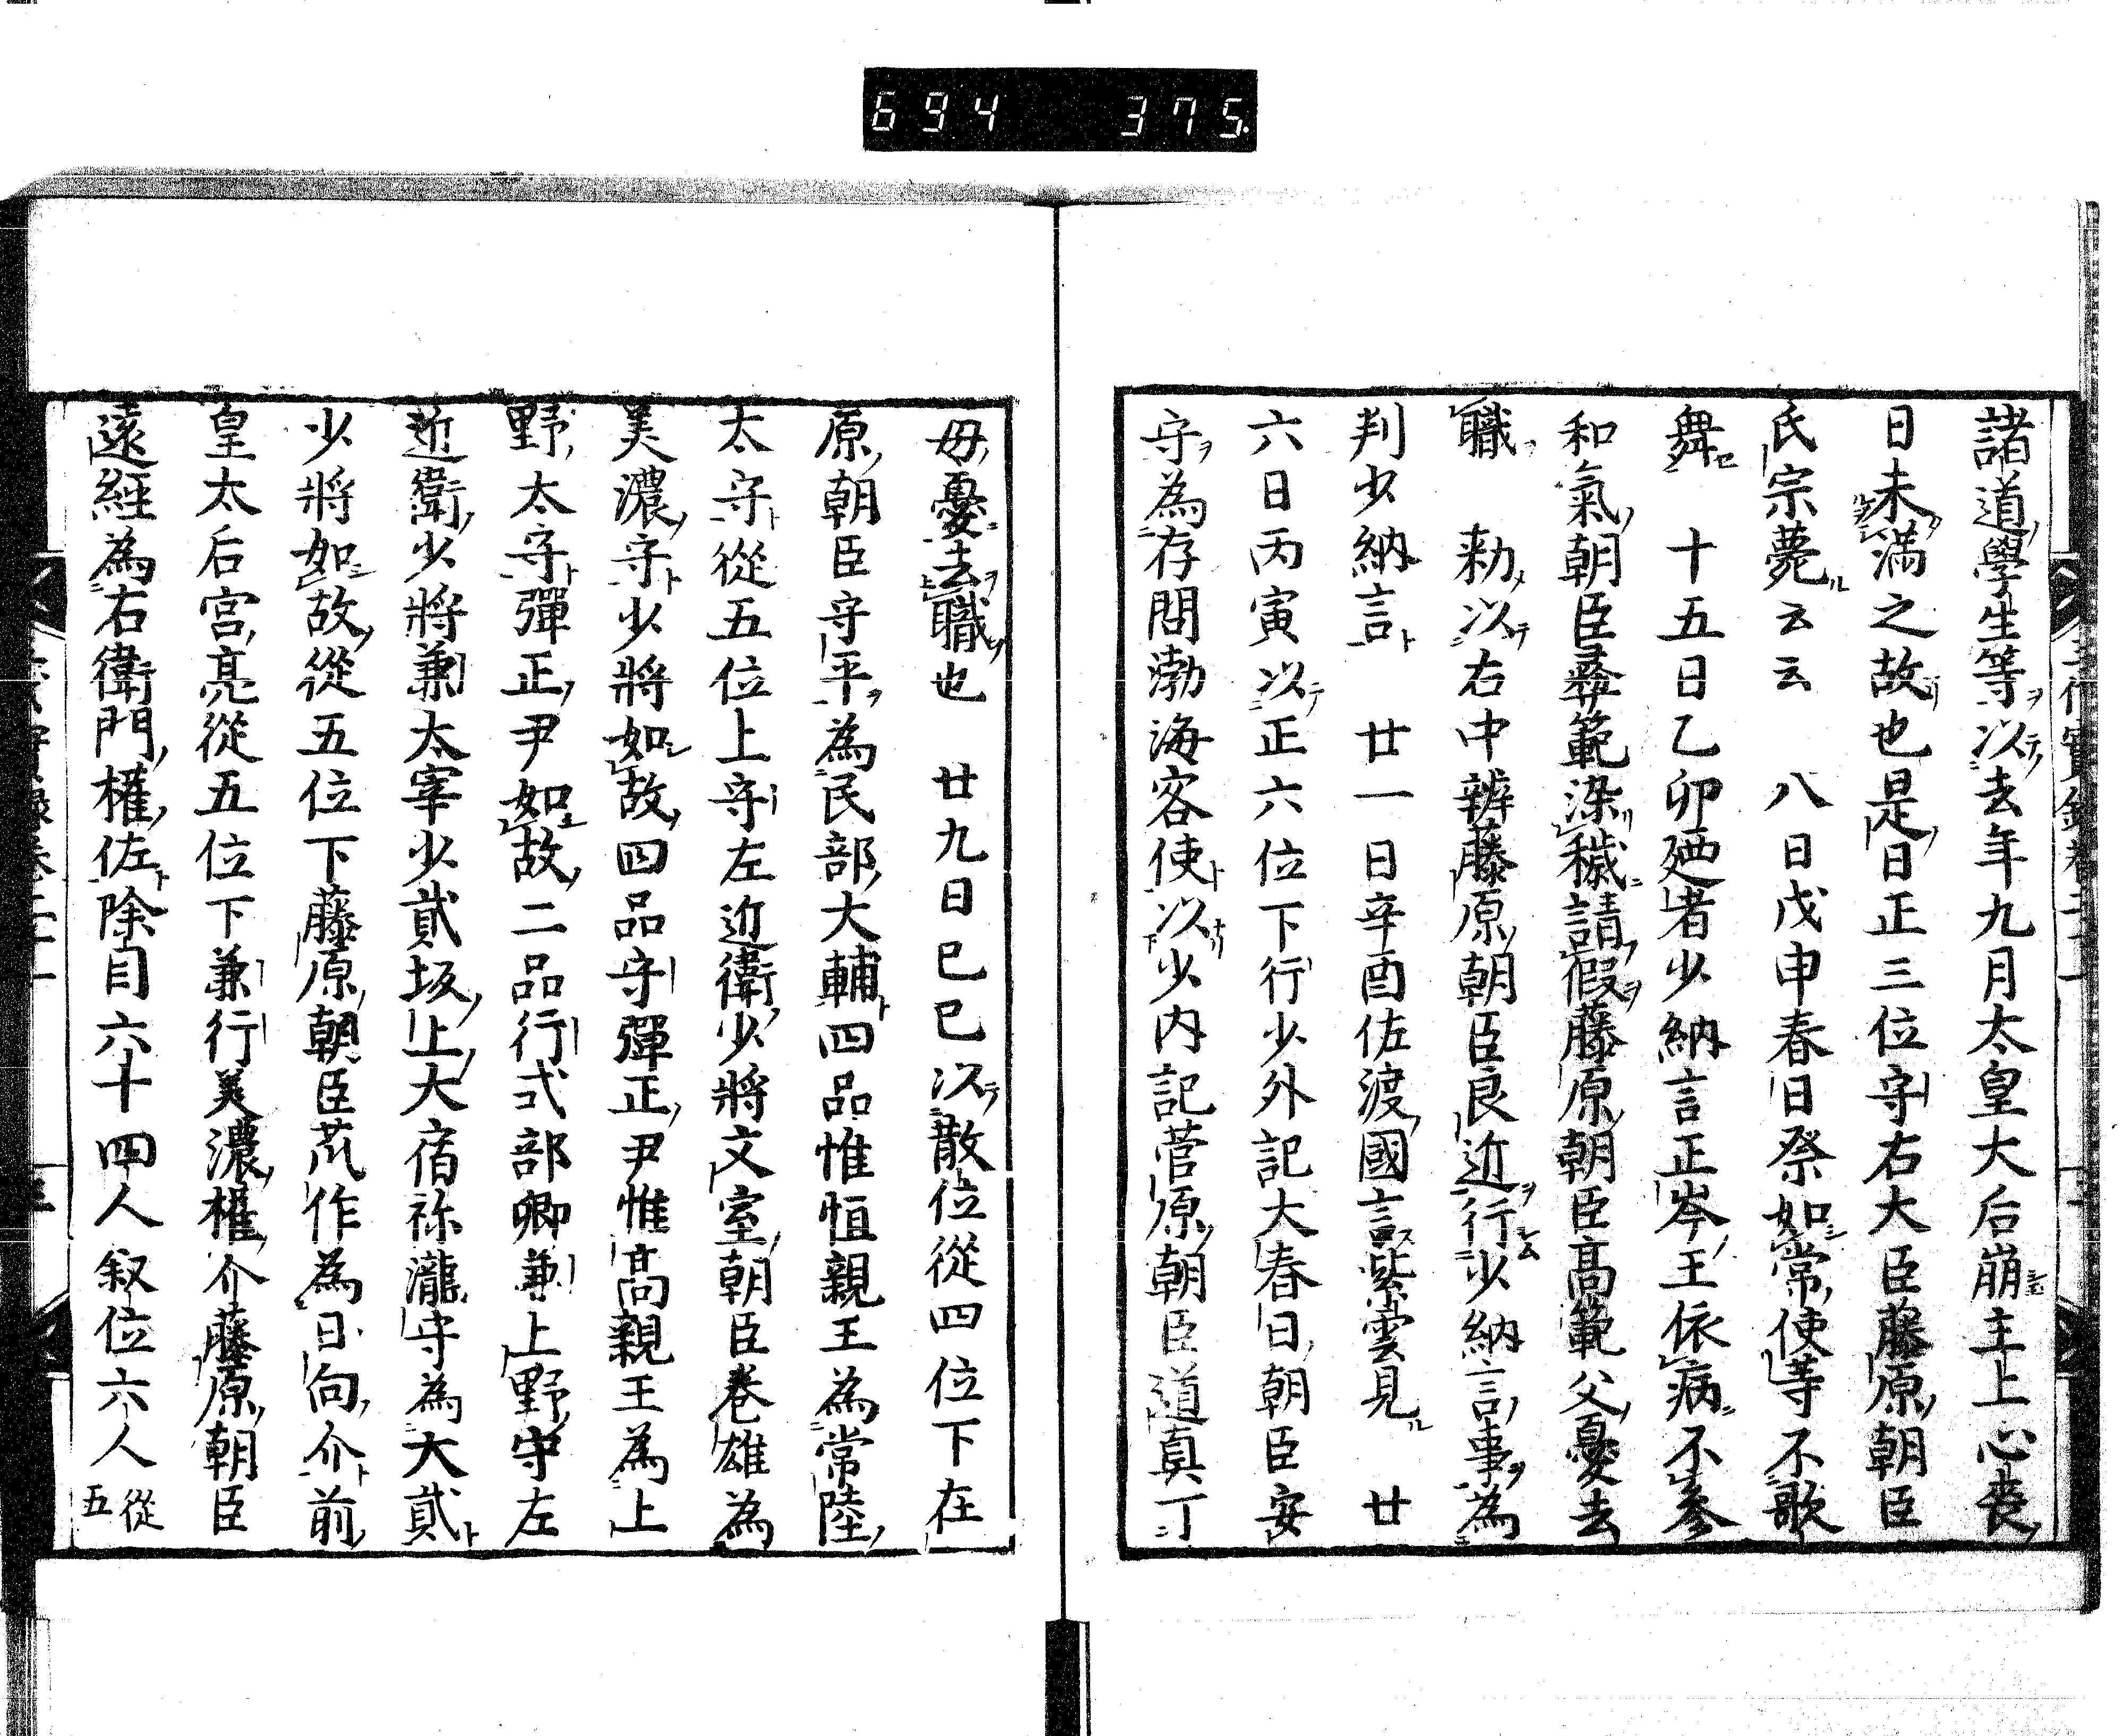 694 375.
諸道學生等以去年九月太皇大后崩主上心喪
日未滿之故也是日正三位守右大臣藤原朝臣
氏宗薨云云 八日戊申春日祭如常使等不歌
舞 十五日乙卯廼者少納言正岑王依病不參
和氣朝臣彜範染穢請假藤原朝臣高範父憂去
職 勅以右中辨藤原朝臣良近行少納言事為
判少納言 廿一日辛酉佐渡國言紫雲見 廿
六日丙寅以正六位下行少外記大春日朝臣安
守為存問渤海客使以少内記菅原朝臣道真丁
母憂去職也 廿九日己巳以散位從四位下在
原朝臣守平為民部大輔四品惟恒親王為常陸
太守從五位上守左近衛少將文室朝臣卷雄為
美濃守少將如故四品守彈正尹惟高親王為上
野太守彈正尹如故二品行式部卿兼上野守左
近衛少將兼太宰少貳坂上大宿祢瀧守為大貳
少將如故從五位下藤原朝臣芃作為日向介前
皇太后宮亮從五位下兼行美濃權介藤原朝臣
遠經為右衛門權佐除目六十四人叙位六人從
五